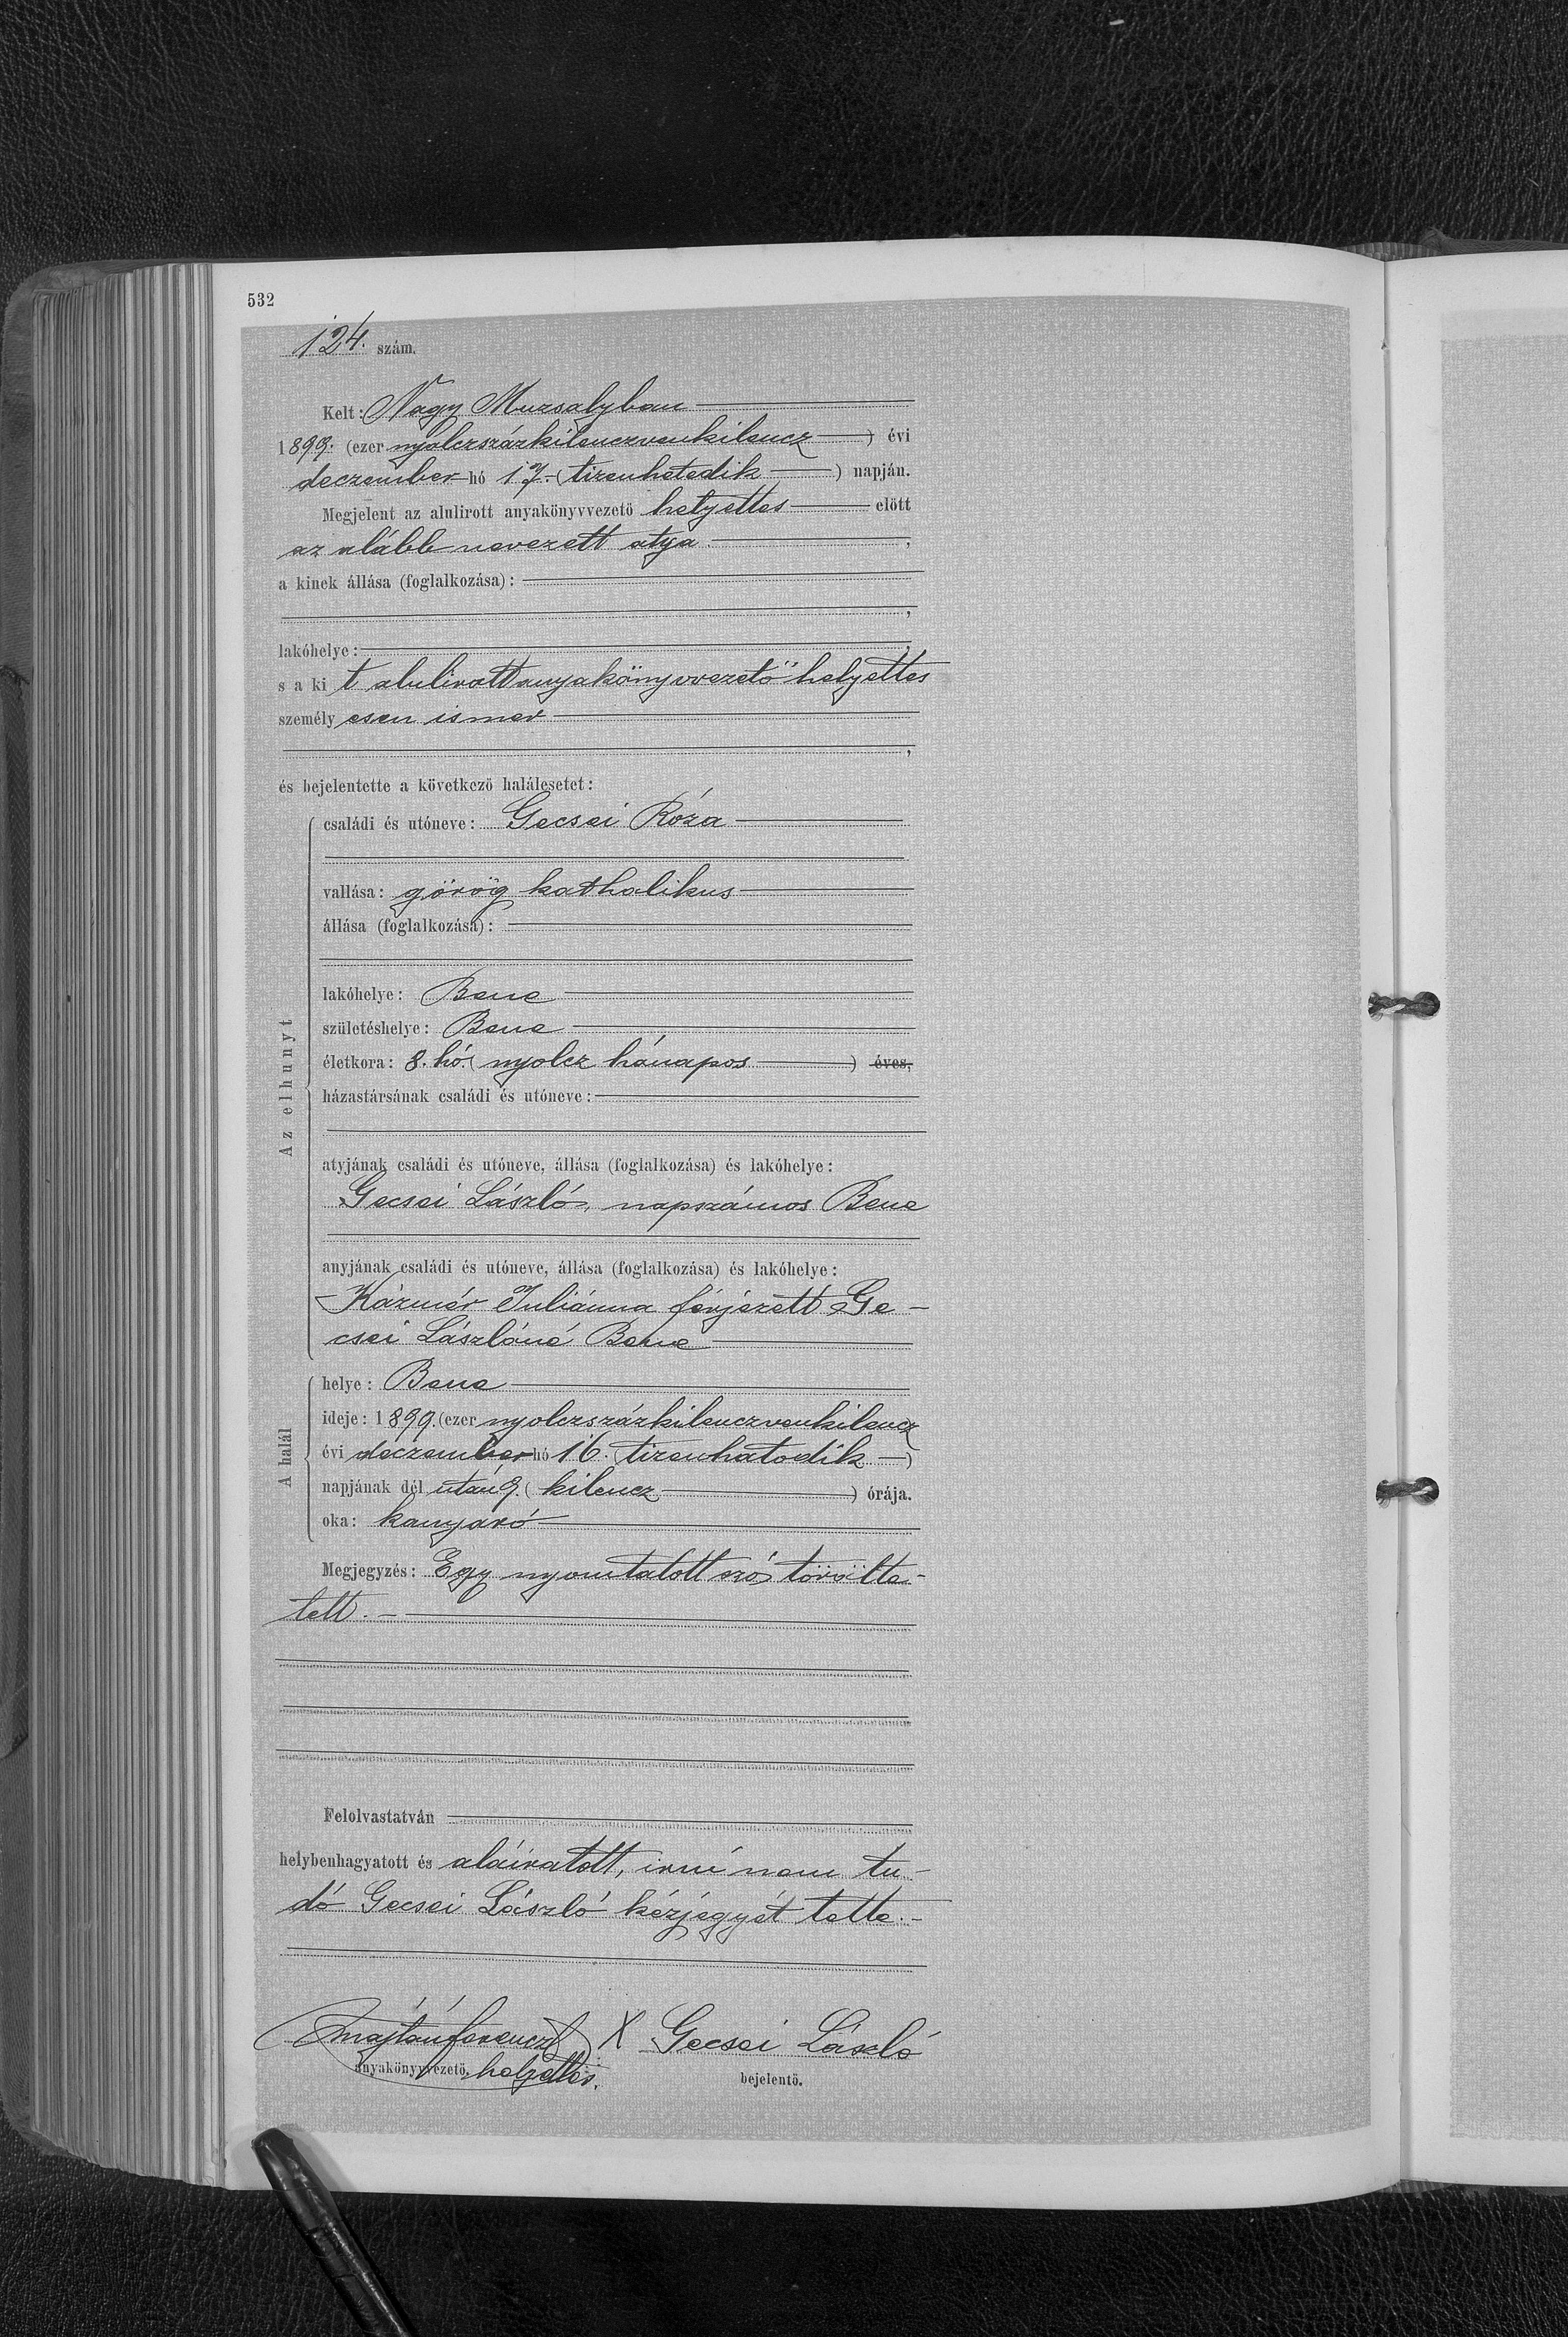 532
124. szám.
Kelt: Nagy Muzsalyban
1899. (ezer nyolczszázkilenczvenkilencz) évi
deczember hó 17. (tizenhetedik) napján.
Megjelent az alulirott anyakönyvvezető helyettes előtt
az alább nevezett atya,
a kinek állása (foglalkozása):
,
lakóhelye:
s a kit alulirott anyakönyvvezető helyettes
személyesen ismer
,
és bejelentette a következő halálesetet:
Az elhunyt
családi és utóneve: Gecsei Róza
vallása: görög katholikus
állása (foglalkozása):
lakóhelye: Bene
születéshelye: Bene
életkora: 8. hó. (nyolcz hónapos) éves,
házastársának családi és utóneve:
atyjának családi és utóneve, állása (foglalkozása) és lakóhelye:
Gecsei László, napszámos Bene
anyjának családi és utóneve, állása (foglalkozása) és lakóhelye:
Kázmér Juliánna férjezett Ge-
csei Lászlóné Bene
A halál
helye: Bene
ideje: 1899. (ezer nyolczszázkilenczvenkilencz
évi deczember hó 16. (tizenhatodik)
napjának dél után 9. (kilencz) órája.
oka: kanyaró
Megjegyzés: Egy nyomtatott szó törölte-
tett.
Felolvastatván
helybenhagyatott és aláiratott, irni nem tu-
dó Gecsei László kézjegyét tette.
Majtán Ferencz X Gecsei László
anyakönyvvezető helyettes. bejelentő.